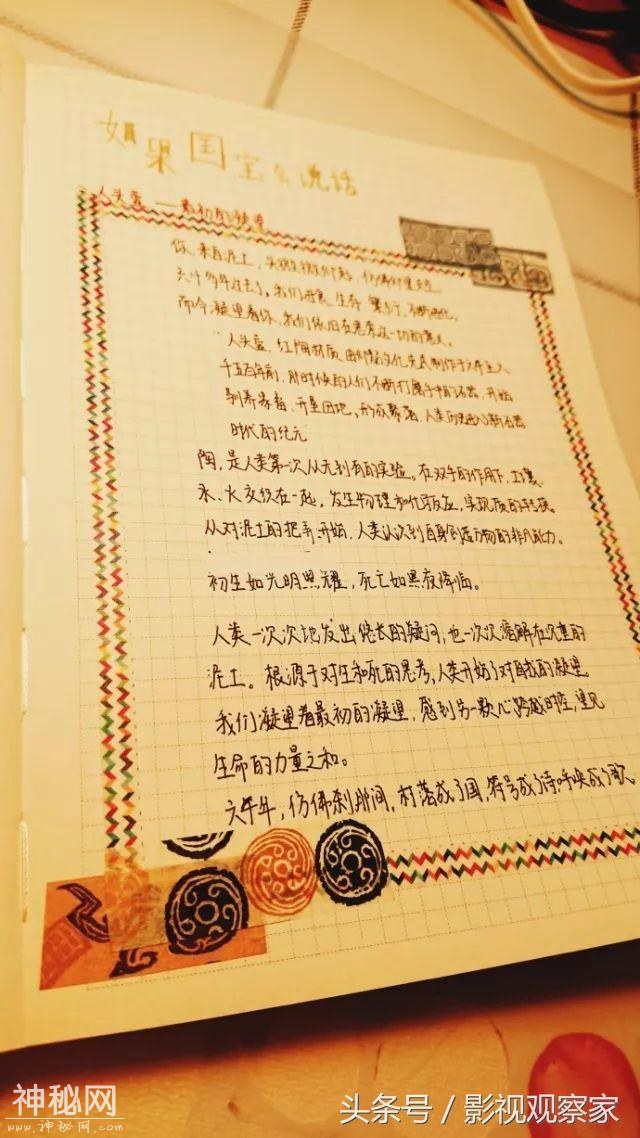 如果国宝会说话
人头壶——最初的凝望
你,来自泥土,头微微仰起,仿佛仰望天空。
六千多年过去了,我们进食、生存、繁衍、不断进化。
而今凝望着你,我们依旧在思索这一切的意义。
人头壶,红陶材质,由仰韶文化先民制作于六千至
千五百年前,那时候的人们不断打磨手中的石器,开始
驯养家畜、开垦田地,形成聚落,人类历史进入新石器
时代的纪元
陶,是人类第一次从无到有的实验。在双手的作用下,土壤、
水、火交织在一起,发生物理和化学反应,实现质的转换。
从对泥土的把弄开始,人类认识到自身创造万物的非凡能力。
初生如光明照耀,死亡如黑夜降临。
人类一次次地发出悠长的疑问,也一次次溶解在沉重的
泥土。根源于对生和死的思考,人类开始了对自我的凝望。
我们凝望着最初的凝望,感到另一颗心跨越时空,望见
生命的力量之和。
六千年,仿佛刹那间,村落成了国,符号成了诗,呼唤成了歌
神秘网
www.神秘网.com
头条号 / 影视观察家